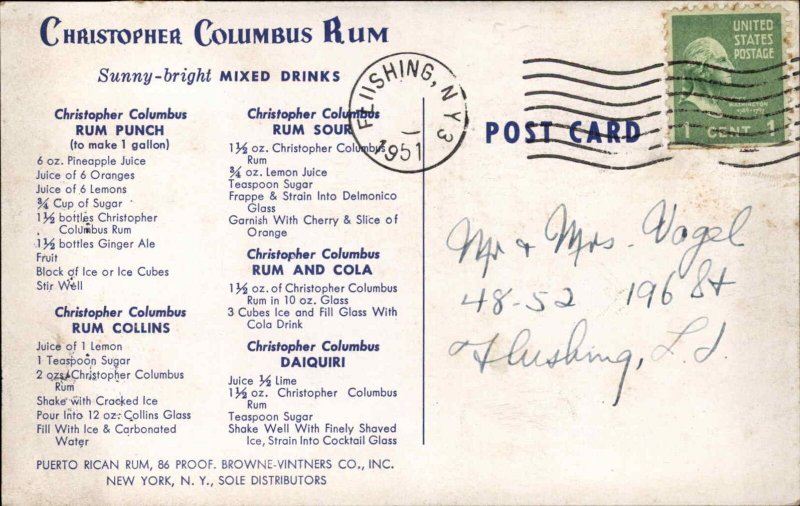 CHRISTOPHER COLUMBUS RUM
Sunny-bright MIXED DRINKS
Christopher Columbus
RUM PUNCH
(to make 1 gallon)
6 oz. Pineapple Juice
Juice of 6 Oranges
Juice of 6 Lemons
¾ Cup of Sugar
1½ bottles Christopher
Columbus Rum
1½ bottles Ginger Ale
Fruit
Block of Ice or Ice Cubes
Stir Well
Christopher Columbus
RUM COLLINS
Juice of 1 Lemon
1 Teaspoon Sugar
2 ozs. Christopher Columbus
Rum
Shake with Cracked Ice
Pour Into 12 oz. Collins Glass
Fill With Ice & Carbonated
Water
Christopher Columbus
RUM SOUR
1½ oz. Christopher Columbus
Rum
¾ oz. Lemon Juice
Teaspoon Sugar
Frappe & Strain Into Delmonico
Glass
Garnish With Cherry & Slice of
Orange
Christopher Columbus
RUM AND COLA
1½ oz. of Christopher Columbus
Rum in 10 oz. Glass
3 Cubes Ice and Fill Glass With
Cola Drink
Christopher Columbus
DAIQUIRI
Juice ½ Lime
1½ oz. Christopher Columbus
Rum
Teaspoon Sugar
Shake Well With Finely Shaved
Ice, Strain Into Cocktail Glass
PUERTO RICAN RUM, 86 PROOF. BROWNE-VINTNERS CO., INC.
NEW YORK, N. Y., SOLE DISTRIBUTORS
FLUSHING, N.Y. 3
1951
UNITED
STATES
POSTAGE
WASHINGTON
1 CENT 1
POST CARD
Mr & Mrs. Vogel
48-52 196 St
Flushing, L.I.